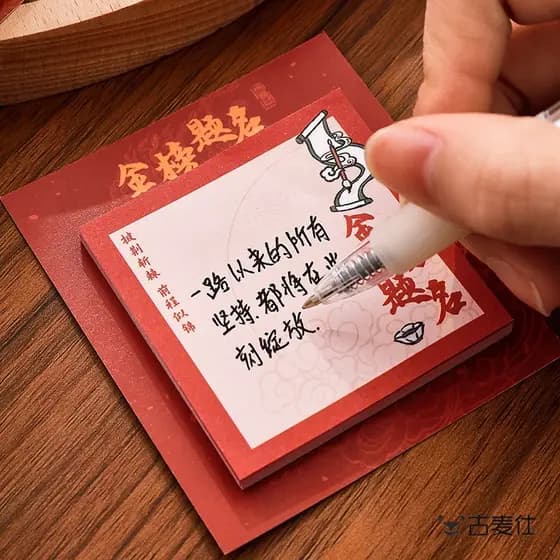 金榜题名
披荆斩棘 前程似锦
一路以来的所有
坚持.都将在此
刻绽放.
金
题名
古麦仕